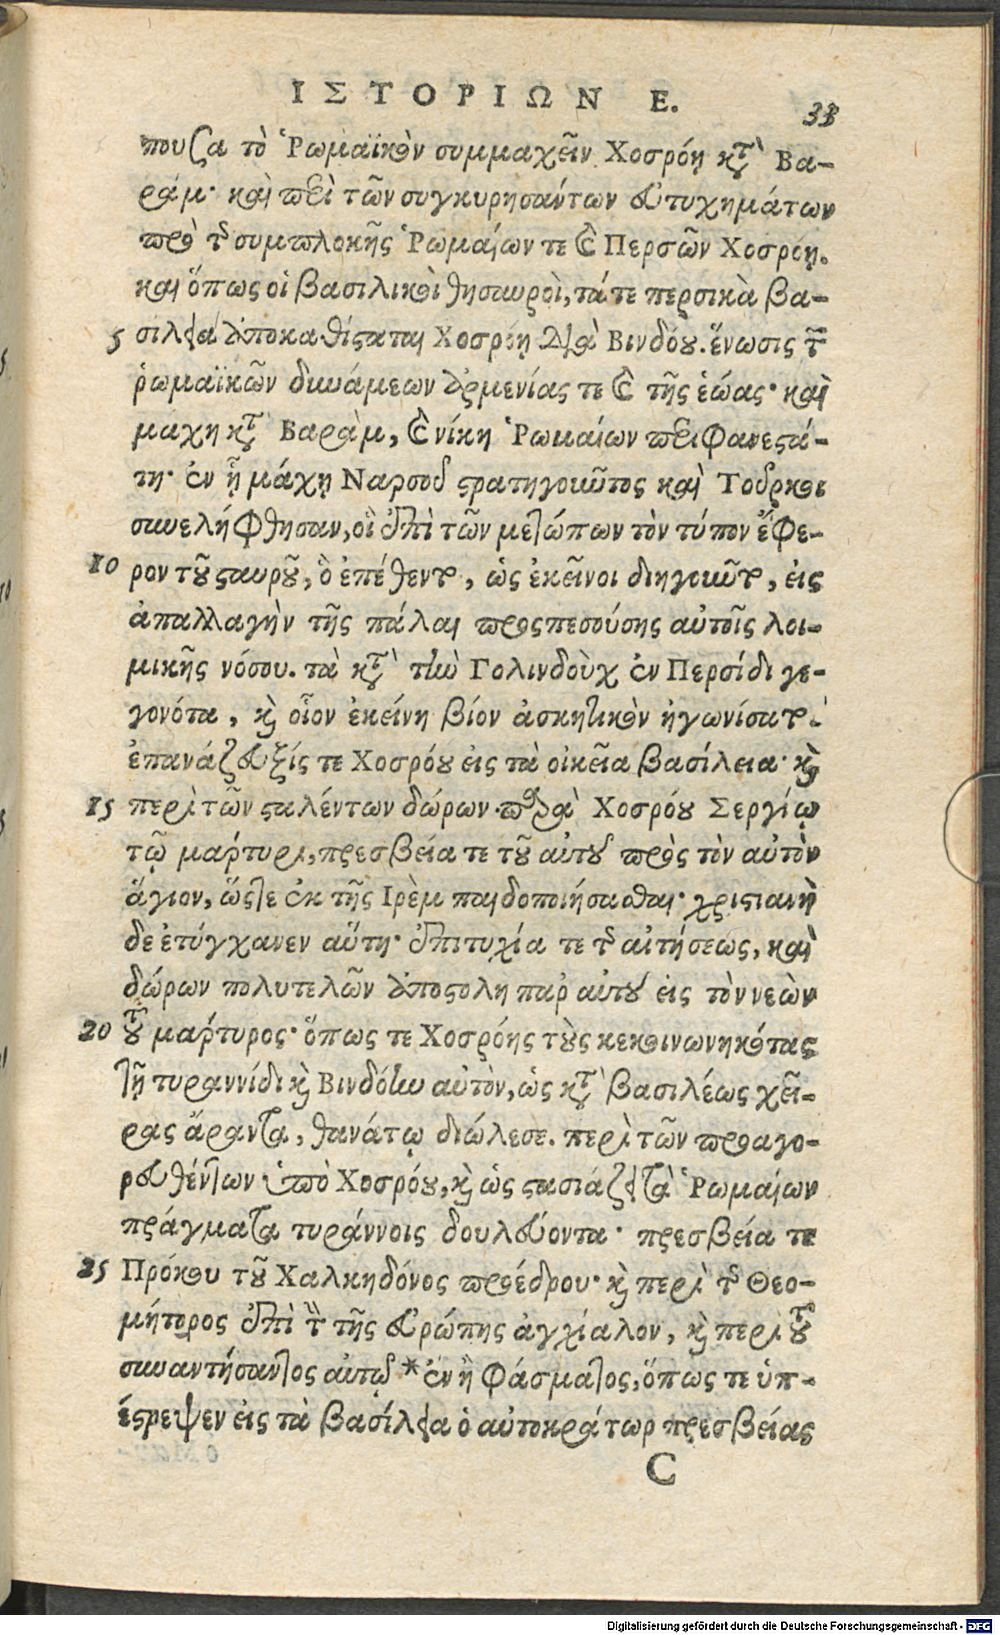 ΙΣΤΟΡΙΩΝ Ε. 33
πουζα τὸ Ῥωμαϊκὸν συμμαχεῖν Χοσρόῃ κτ̀ Βα-
ράμ· καὶ περὶ τῶν συγκυρησάντων εὐτυχημάτων
πρὸ τ συμπλοκῆς Ῥωμαίων τε καὶ Περσῶν Χοσρόῃ.
καὶ ὅπως οἱ βασιλικοὶ θησαυροὶ, τά τε περσικὰ βα-
5 σίλεια ἀποκαθίσταται Χοσρόῃ διὰ Βινδόου. ἕνωσις τ
ῥωμαϊκῶν δυνάμεων ἀρμενίας τε καὶ τῆς ἑώας· καὶ
μάχη κτ̀ Βαρὰμ, καὶ νίκη Ῥωμαίων περιφανεστά-
τη· ἐν ᾗ μάχῃ Ναρσοῦ στρατηγοῦντος καὶ Τοῦρκοι
συνελήφθησαν, οἳ ἐπὶ τῶν μετώπων τὸν τύπον ἔφε-
10 ρον τοῦ σταυροῦ, ὃ ἐπέθεντο, ὡς ἐκεῖνοι διηγοῦντο, εἰς
ἀπαλλαγὴν τῆς πάλαι προςπεσούσης αὐτοῖς λοι-
μικῆς νόσου. τὰ κτ̀ τὴν Γολινδοὺχ ἐν Περσίδι γε-
γονότα, καὶ οἷον ἐκείνη βίον ἀσκητικὸν ἠγωνίσατο.
ἐπανάζευξίς τε Χοσρόου εἰς τὰ οἰκεῖα βασίλεια· καὶ
15 περὶ τῶν σταλέντων δώρων παρὰ Χοσρόου Σεργίῳ
τῷ μάρτυρι, πρεσβεία τε τοῦ αὐτοῦ πρὸς τὸν αὐτὸν
ἅγιον, ὥστε ἐκ τῆς Ιρὲμ παιδοποιήσασθαι· χριστιανὴ
δὲ ἐτύγχανεν αὕτη· ἐπιτυχία τε τ αἰτήσεως, καὶ
δώρων πολυτελῶν ἀποστολὴ παρ αὐτοῦ εἰς τὸν νεὼν
20 τοῦ μάρτυρος· ὅπως τε Χοσρόης τοὺς κεκοινωνηκότας
τῇ τυραννίδι καὶ Βινδόην αὐτὸν, ὡς κτ̀ βασιλέως χεῖ-
ρας ἄραντα, θανάτῳ διώλεσε. περὶ τῶν προαγο-
ρευθέντων ὑπὸ Χοσρόου, καὶ ὡς στασιάζει τὰ Ῥωμαίων
πράγματα τυράννοις δουλεύοντα· πρεσβεία τε
25 Πρόκου τοῦ Χαλκηδόνος προέδρου· καὶ περὶ τ Θεο-
μήτορος ἐπὶ τ τῆς εὐρώπης ἀγχίαλον, καὶ περὶ τοῦ
συναντήσαντος αὐτῷ * ἐν ᾗ φάσματος, ὅπως τε ὑπ-
έστρεψεν εἰς τὰ βασίλεια ὁ αὐτοκράτωρ πρεσβείας
C
Digitalisierung gefördert durch die Deutsche Forschungsgemeinschaft - DFG